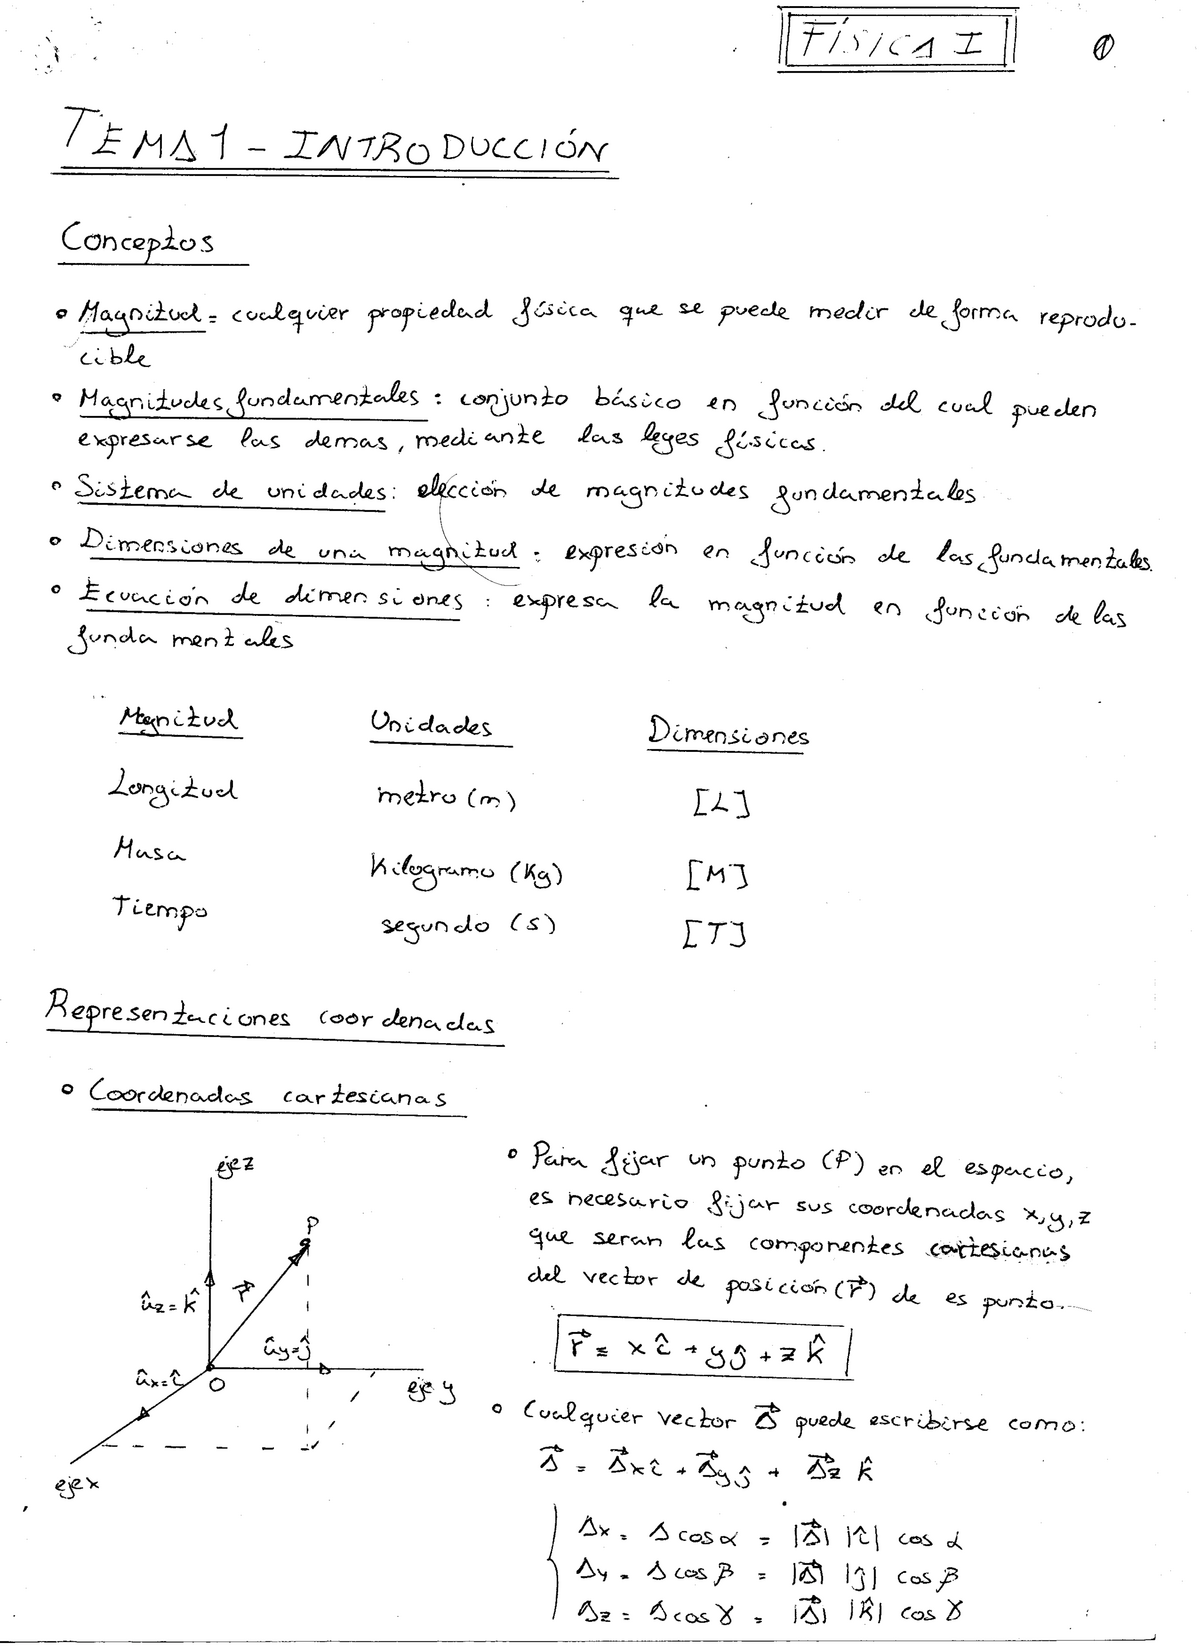 FÍSICA I
1
TEMA 1 - INTRODUCCIÓN
Conceptos
• Magnitud = cualquier propiedad física que se puede medir de forma reprodu-
cible
• Magnitudes fundamentales: conjunto básico en función del cual pueden
expresarse las demas, mediante las leyes físicas.
• Sistema de unidades: elección de magnitudes fundamentales
• Dimensiones de una magnitud: expresión en función de las fundamentales.
• Ecuación de dimensiones: expresa la magnitud en función de las
fundamentales
Magnitud Unidades Dimensiones
Longitud metro (m) [L]
Masa Kilogramo (Kg) [M]
Tiempo segundo (s) [T]
Representaciones coordenadas
• Coordenadas cartesianas
eje z
P
r⃗
ûz = k̂
ûy = ĵ
ûx = î
O
eje y
eje x
• Para fijar un punto (P) en el espacio,
es necesario fijar sus coordenadas x, y, z
que seran las componentes cartesianas
del vector de posición (r⃗) de es punto.
r⃗ = x î + y ĵ + z k̂
• Cualquier vector A⃗ puede escribirse como:
A⃗ = A⃗x î + A⃗y ĵ + A⃗z k̂
Ax = A cos α = |A⃗| |î| cos α
Ay = A cos β = |A⃗| |ĵ| cos β
Az = A cos γ = |A⃗| |k̂| cos γ